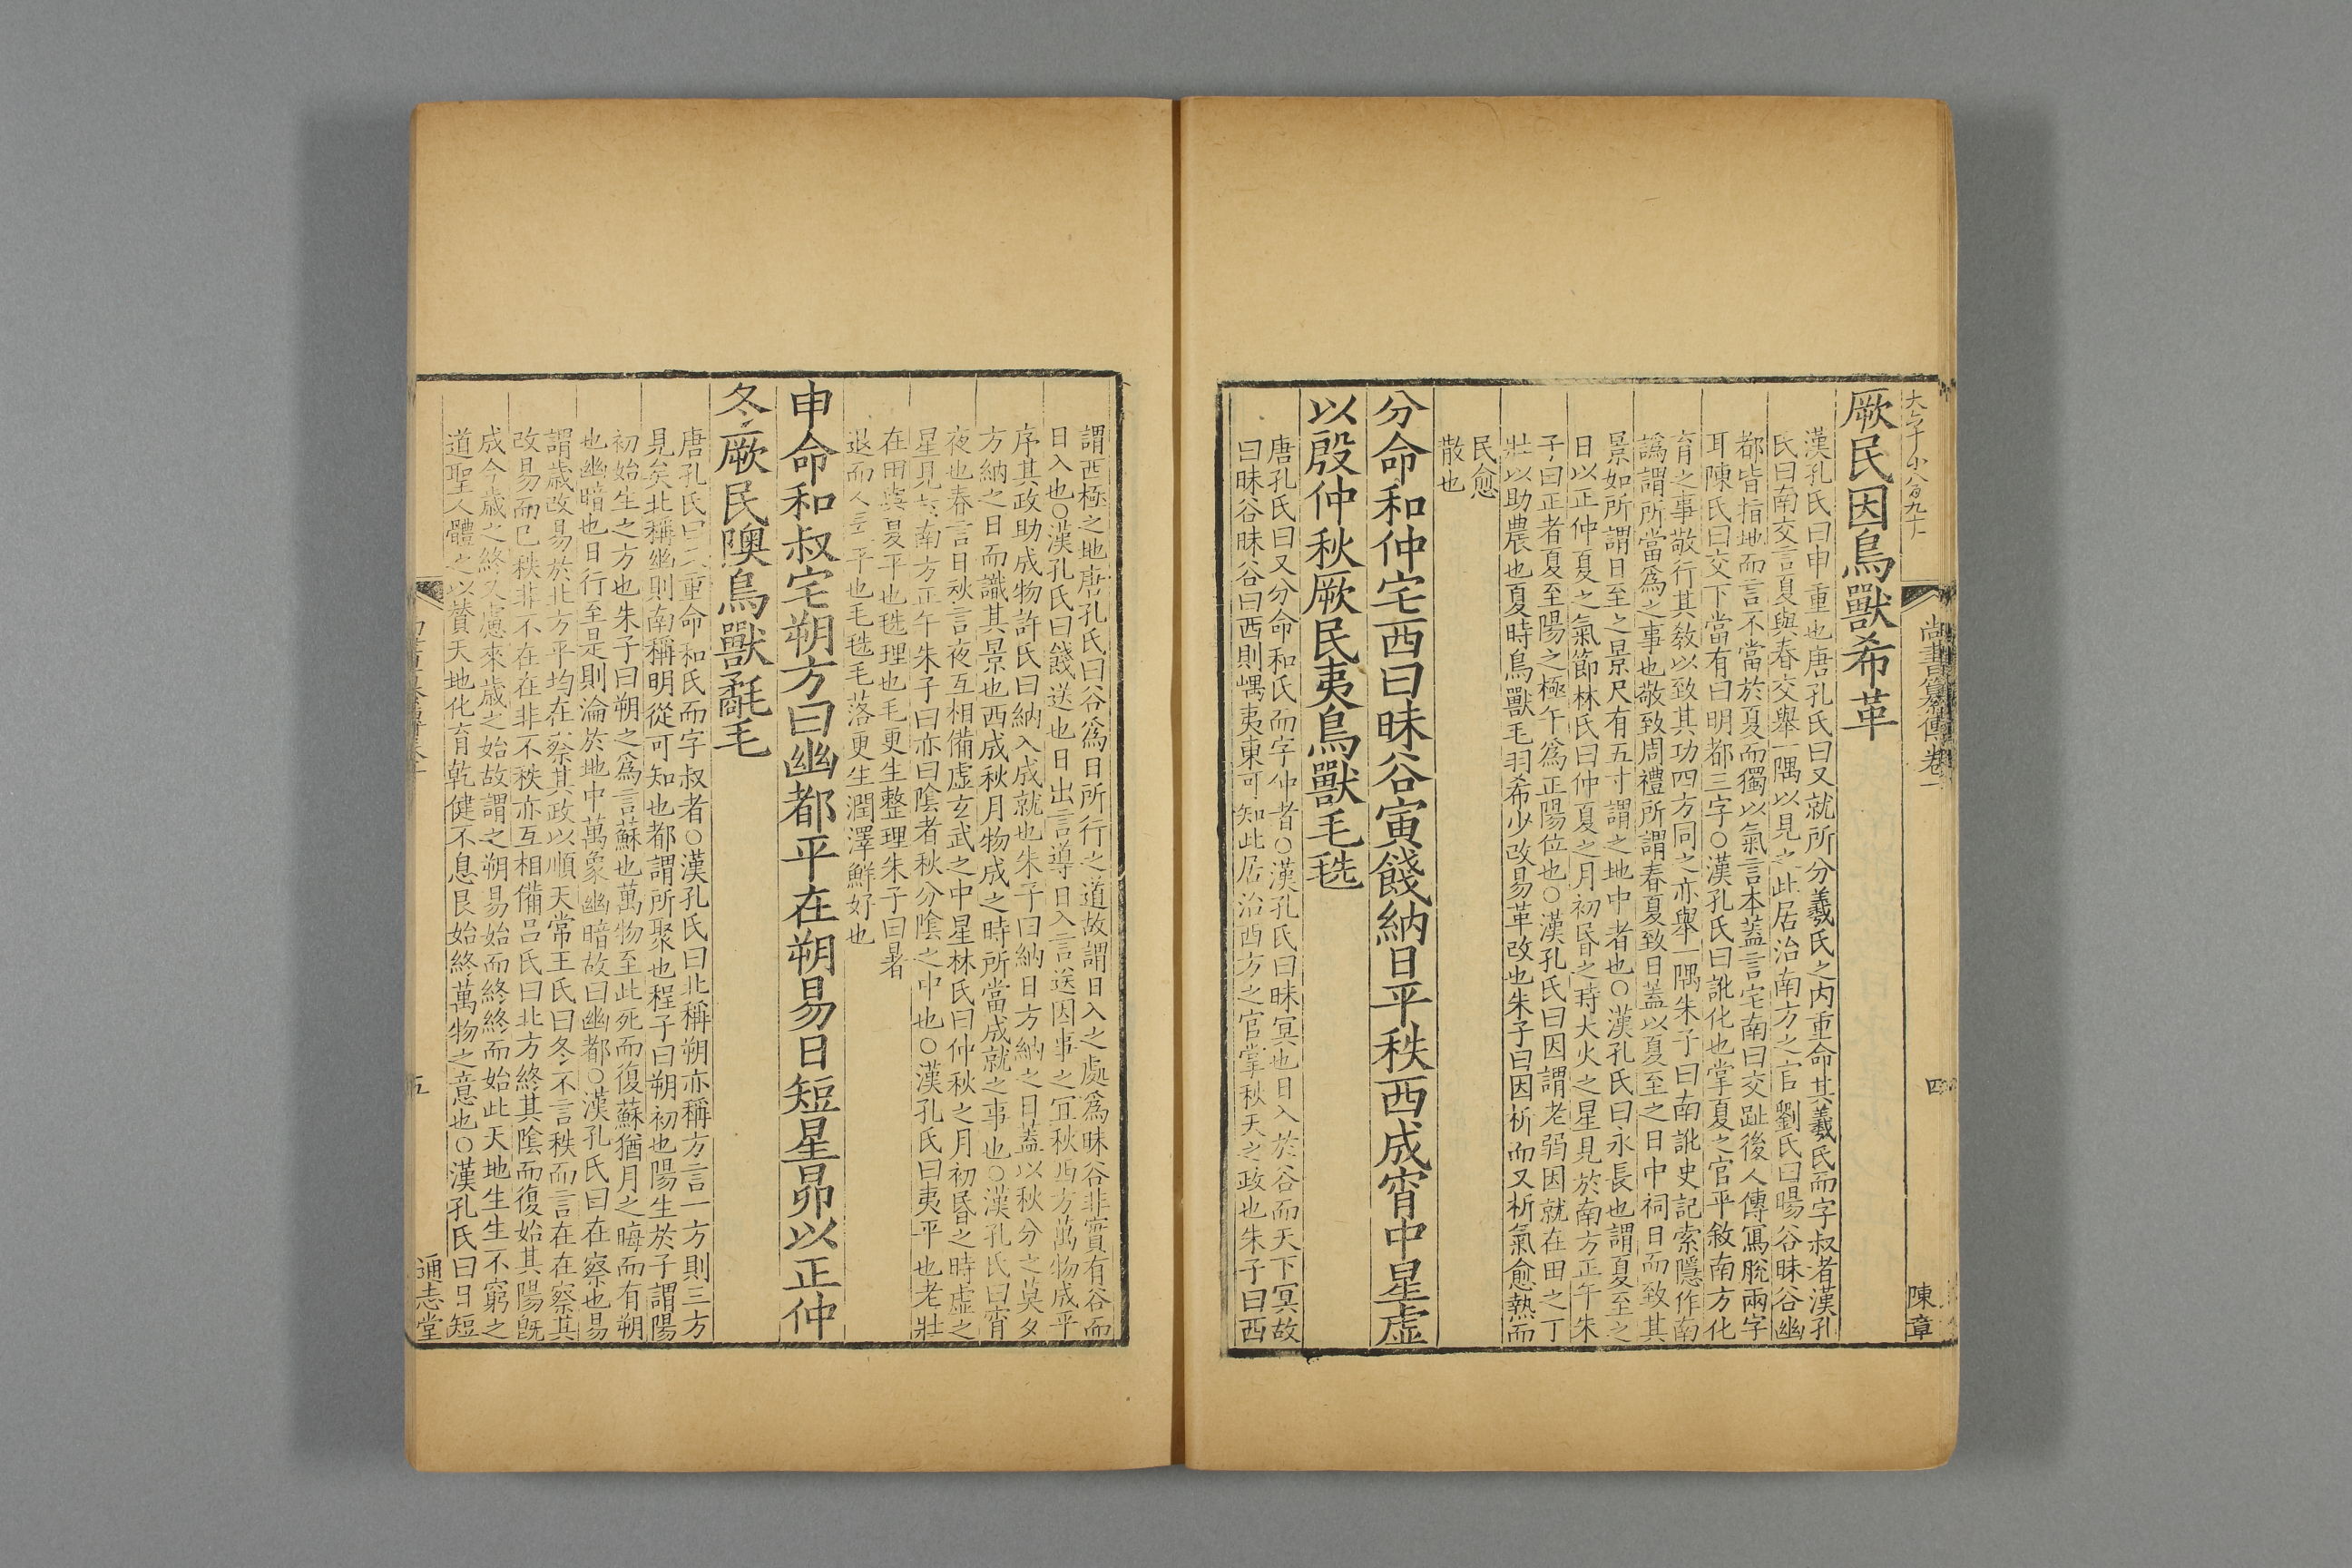 尚書纂傳卷一
四
陳章
厥民因鳥獸希革
漢孔氏曰申重也唐孔氏曰又就所分羲氏之内重命其羲氏而字叔者漢孔
氏曰南交言夏與春交舉一隅以見之此居治南方之官劉氏曰暘谷昧谷幽
都皆指地而言不當於夏而獨以氣言本蓋言宅南曰交趾後人傳寫脫兩字
耳陳氏曰交下當有曰明都三字○漢孔氏曰訛化也掌夏之官平敘南方化
育之事敬行其教以致其功四方同之亦舉一隅朱子曰南訛史記索隱作南
譌謂所當爲之事也敬致周禮所謂春夏致日蓋以夏至之日中祠日而致其
景如所謂日至之景尺有五寸謂之地中者也○漢孔氏曰永長也謂夏至之
日以正仲夏之氣節林氏曰仲夏之月初昏之時大火之星見於南方正午朱
子曰正者夏至陽之極午爲正陽位也○漢孔氏曰因謂老弱因就在田之丁
壯以助農也夏時鳥獸毛羽希少改易革改也朱子曰因析而又析氣愈熱而
民愈
散也
分命和仲宅西曰昧谷寅餞納日平秩西成宵中星虛
以殷仲秋厥民夷鳥獸毛毨
唐孔氏曰又分命和氏而字仲者○漢孔氏曰昧冥也日入於谷而天下冥故
曰昧谷昧谷曰西則嵎夷東可知此居治西方之官掌秋天之政也朱子曰西
謂西極之地唐孔氏曰谷爲日所行之道故謂日入之處爲昧谷非實有谷而
日入也○漢孔氏曰餞送也日出言導日入言送因事之宜秋西方萬物成平
序其政助成物許氏曰納入成就也朱子曰納日方納之日蓋以秋分之莫夕
方納之日而識其景也西成秋月物成之時所當成就之事也○漢孔氏曰宵
夜也春言日秋言夜互相備虛玄武之中星林氏曰仲秋之月初昏之時虛之
星見於南方正午朱子曰亦曰陰者秋分陰之中也○漢孔氏曰夷平也老壯
在田與夏平也毨理也毛更生整理朱子曰暑
退而人氣平也毛毨毛落更生潤澤鮮好也
申命和叔宅朔方曰幽都平在朔易日短星昴以正仲
冬厥民隩鳥獸氄毛
唐孔氏曰又重命和氏而字叔者○漢孔氏曰北稱朔亦稱方言一方則三方
見矣北稱幽則南稱明從可知也都謂所聚也程子曰朔初也陽生於子謂陽
初始生之方也朱子曰朔之爲言蘇也萬物至此死而復蘇猶月之晦而有朔
也幽暗也日行至是則淪於地中萬象幽暗故曰幽都○漢孔氏曰在察也易
謂歲改易於北方平均在察其政以順天常王氏曰冬不言秩而言在在察其
改易而已秩非不在在非不秩亦互相備呂氏曰北方終其陰而復始其陽旣
成今歲之終又慮來歲之始故謂之朔易始而終終而始此天地生生不窮之
道聖人體之以贊天地化育乾健不息艮始終萬物之意也○漢孔氏曰日短
五
通志堂